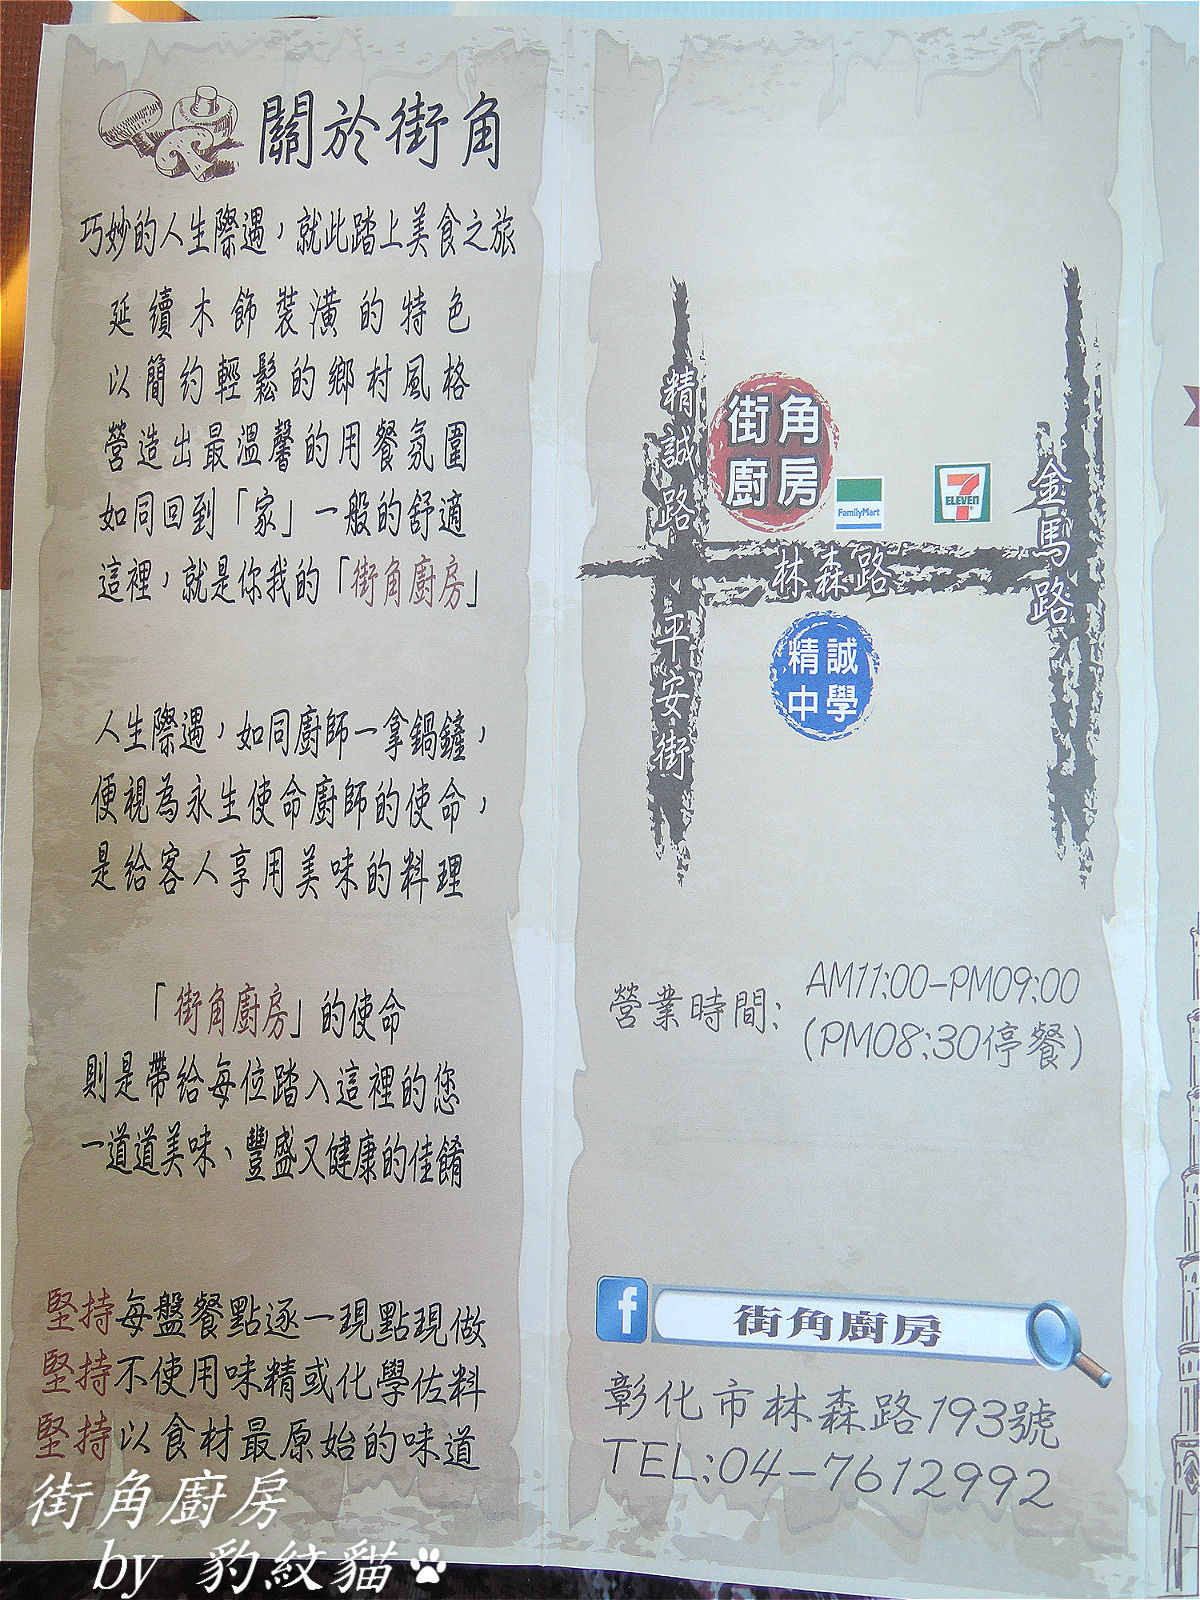 關於街角
巧妙的人生際遇，就此踏上美食之旅
延續木飾裝潢的特色
以簡約輕鬆的鄉村風格
營造出最溫馨的用餐氛圍
如同回到「家」一般的舒適
這裡，就是你我的「街角廚房」
人生際遇，如同廚師一拿鍋鏟，
便視為永生使命廚師的使命，
是給客人享用美味的料理
「街角廚房」的使命
則是帶給每位踏入這裡的您
一道道美味、豐盛又健康的佳餚
堅持每盤餐點逐一現點現做
堅持不使用味精或化學佐料
堅持以食材最原始的味道
精誠路
街角
廚房
FamilyMart
7
ELEVEn
金馬路
林森路
平安街
精誠
中學
營業時間：AM11:00-PM09:00
(PM08:30停餐)
f
街角廚房
彰化市林森路193號
TEL:04-7612992
街角廚房
by 豹紋貓